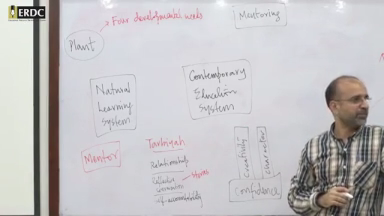 ERDC
Plant
Four developmental needs
Mentoring
Natural
Learning
System
Contemporary
Education
System
Mentor
Tarbiyah
Relationships
Collective
of accountability
Creativity
Character
Confidence